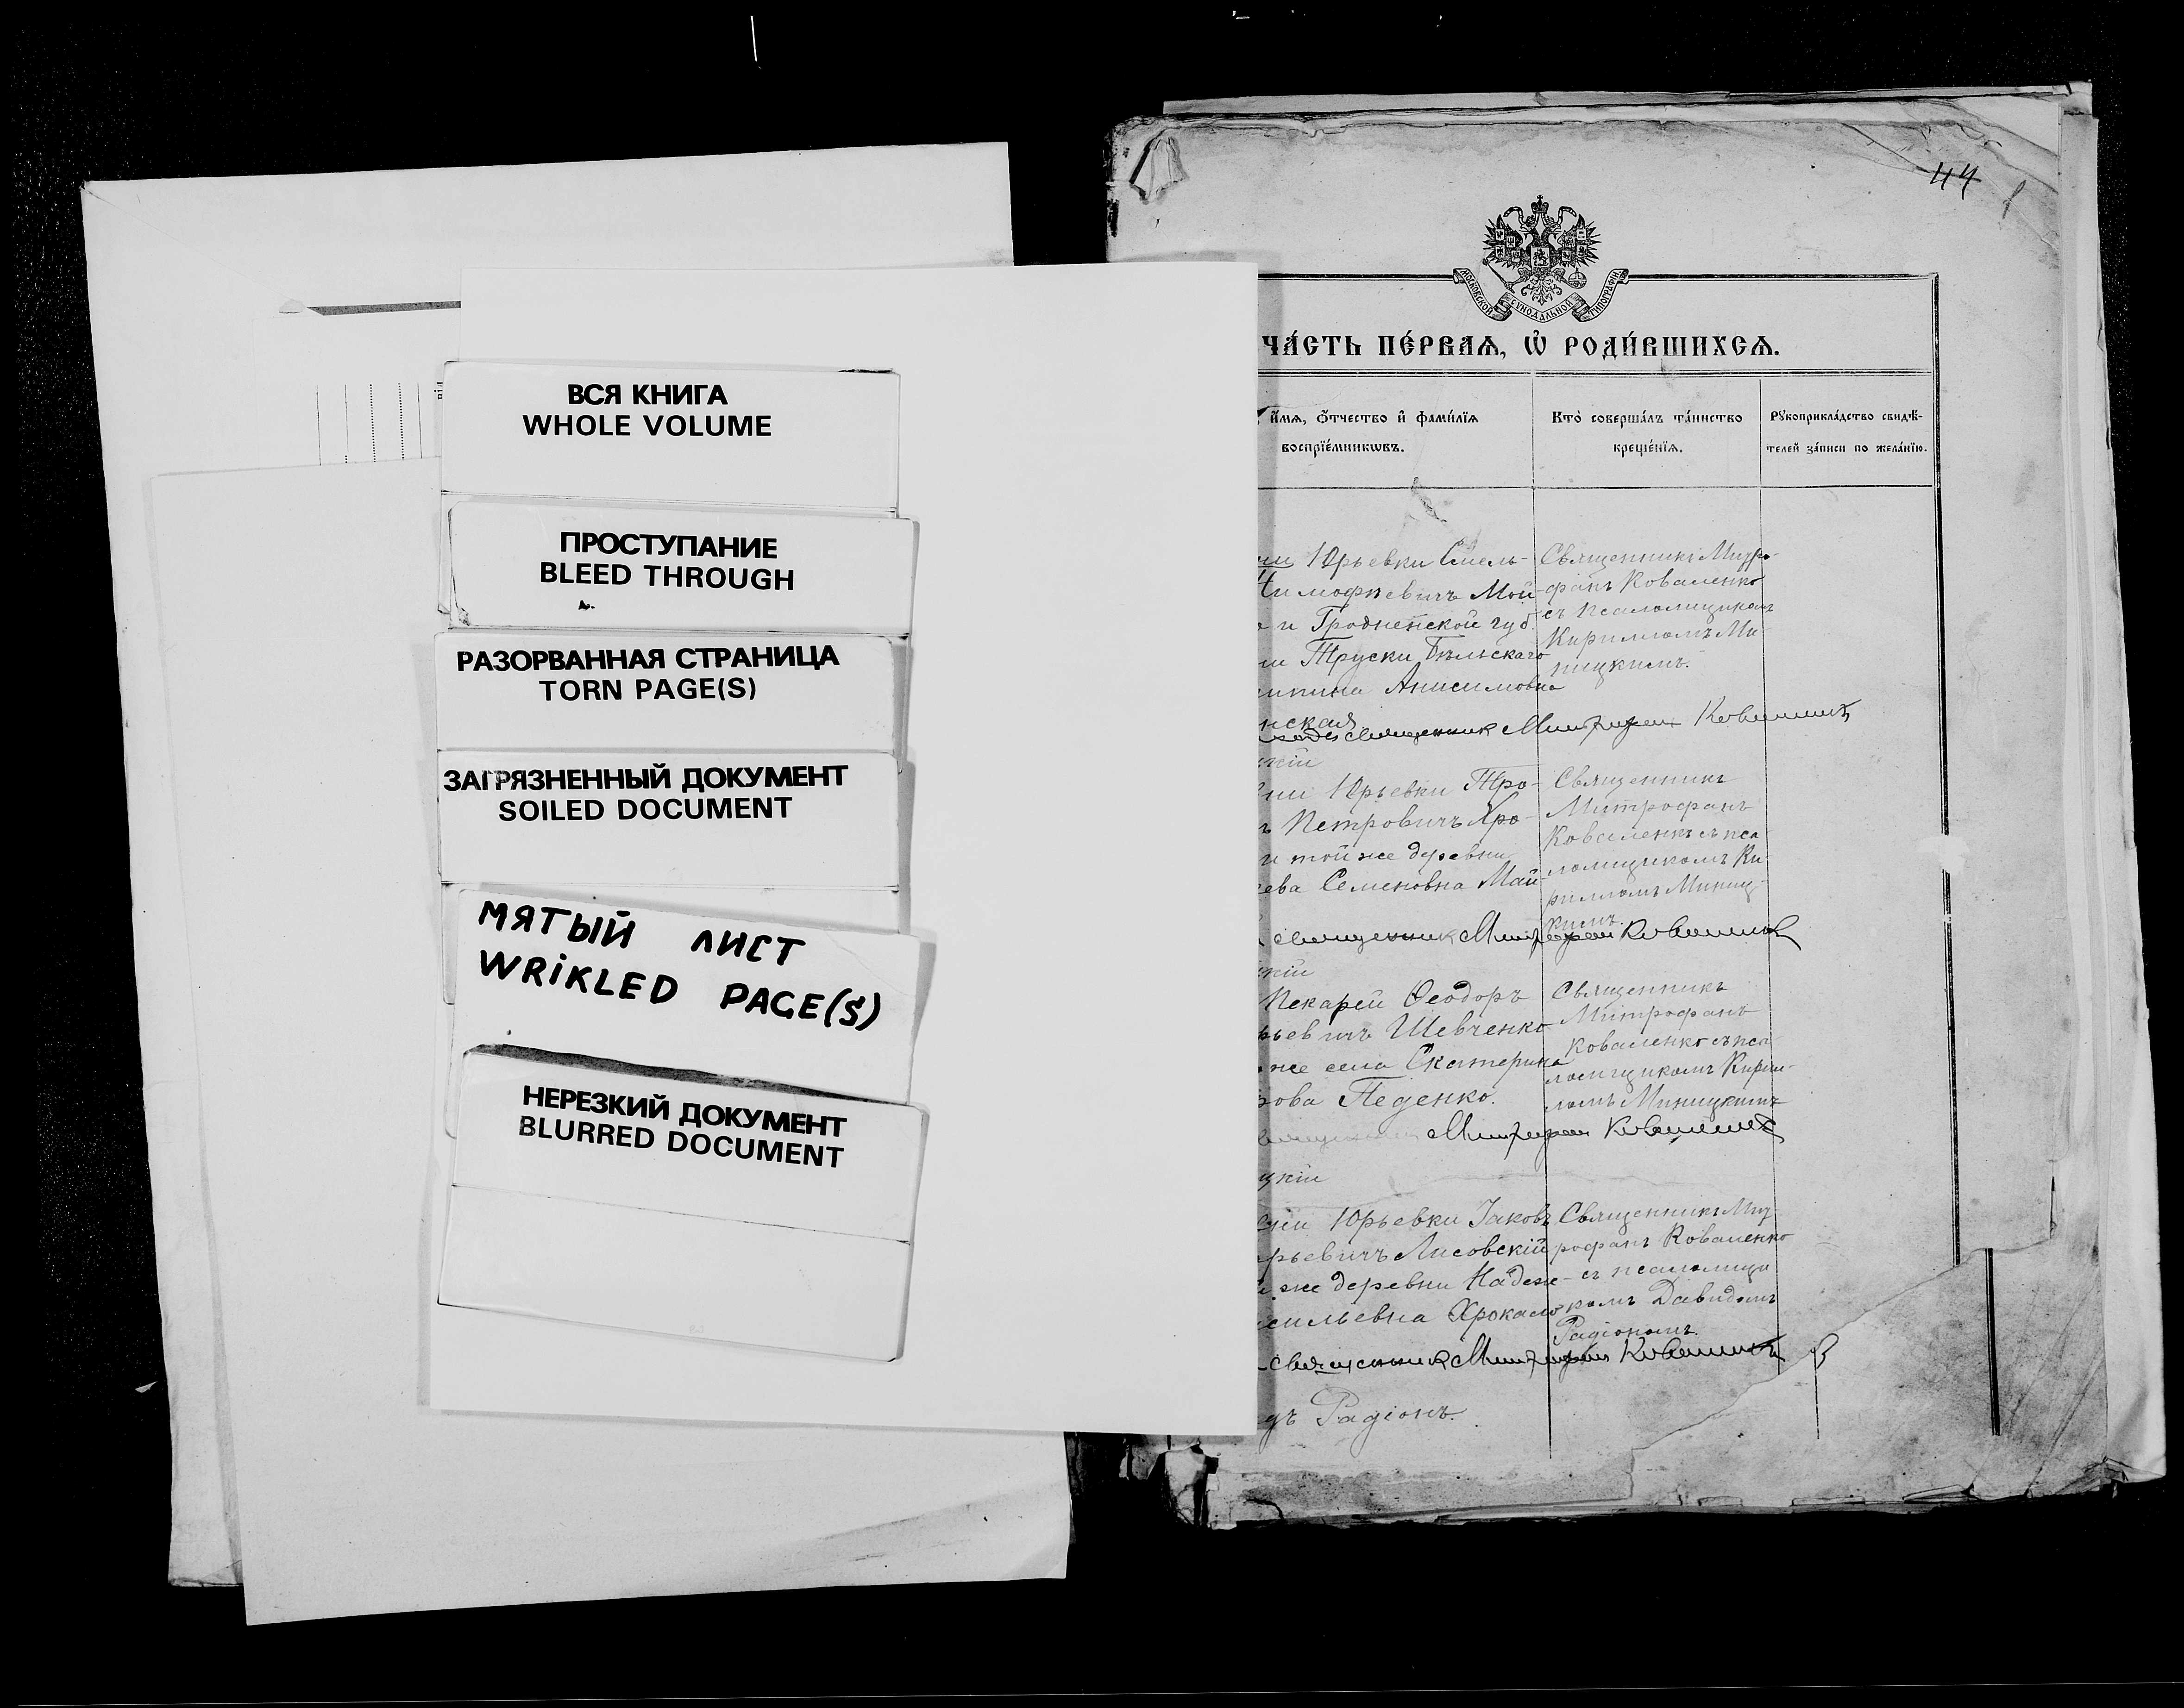 ВСЯ КНИГА
WHOLE VOLUME
ПРОСТУПАНИЕ
BLEED THROUGH
РАЗОРВАННАЯ СТРАНИЦА
TORN PAGE(S)
ЗАГРЯЗНЕННЫЙ ДОКУМЕНТ
SOILED DOCUMENT
МЯТЫЙ ЛИСТ
WRIKLED PAGE(S)
НЕРЕЗКИЙ ДОКУМЕНТ
BLURRED DOCUMENT
44
МОСКОВСКОЙ СУНОДАЛЬНОЙ ТИПОГРАФІИ
ЧА́СТЬ ПЕ́РВАѦ, Ѡ҆ РОДИ́ВШИХСѦ.
и҆́мѧ, ѻ҆́тчество и҆ фамѝлїѧ
воспрїе́мникѡвъ.
Кто̀ соверша́лъ та́инство
креще́нїѧ.
Рꙋкоприкла́дство свидѣ́-
телей за́писи по жела́нїю.
Юрьевки Смель-
Тимофѣевичъ Мой-
и Гродненской губ.
Труски Бѣльскаго
Анисимовна
нская
Священникъ Митро-
фанъ Коваленко
съ псаломщикомъ
Кирилломъ Ми
ницкимъ.
священник Митрофан Коваленко
Юрьевки Тро-
Петровичъ Хро-
и той же деревни
ева Семеновна Май-
Священникъ
Митрофанъ
Коваленко съ пса
ломщикомъ Ки-
рилломъ Миниц-
кимъ.
священник Митрофан Коваленко
Пекарей Ѳеодоръ
рьевичъ Шевченко
же села Екатерина
рова Педенко.
Священникъ
Митрофанъ
Коваленко съ пса-
ломщикомъ Кирил-
ломъ Миницкимъ
Митрофан Коваленко
цкій
Юрьевки Іаковъ
рьевичъ Лисовскій
же деревни Надеж-
сильевна Хрокало
Священникъ Мит-
рофанъ Коваленко
съ псаломщи
комъ Давидомъ
Радіономъ.
священник Митрофан Коваленко
дъ Радіонъ.